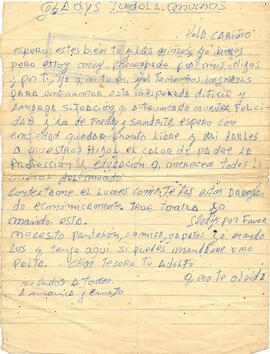 GLADYS
HOLA CARIÑO
espero estes bien tu y los niños, yo bien
pero estoy muy preocupado por mis Hijos
y por ti. Yo q. mi tu q. tenemos
para enfrentar esta inesperada dificil y
Amarga situación q. a truncado nuestra Felici
dad y la de Freddy y Sandrita espero con
ansiedad quedar pronto libre y asi darles
a nuestros Hijos el calor de padre la
protección y educación q. merecen todos los
niños del mundo
contestame el lunes como te las estas
do económicamente trae toalla
mando esta. Gladys por Favor
necesito pantalon, camisa, zapatos te mando
los q. tengo aqui si puedes mandame una
Tesoro tu Adolfo
saludos a todos q. no te olvida